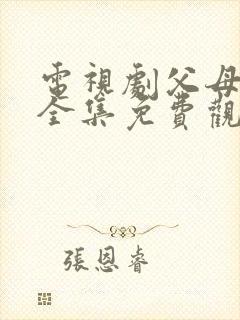 電視劇父母
全集免費觀
張恩睿